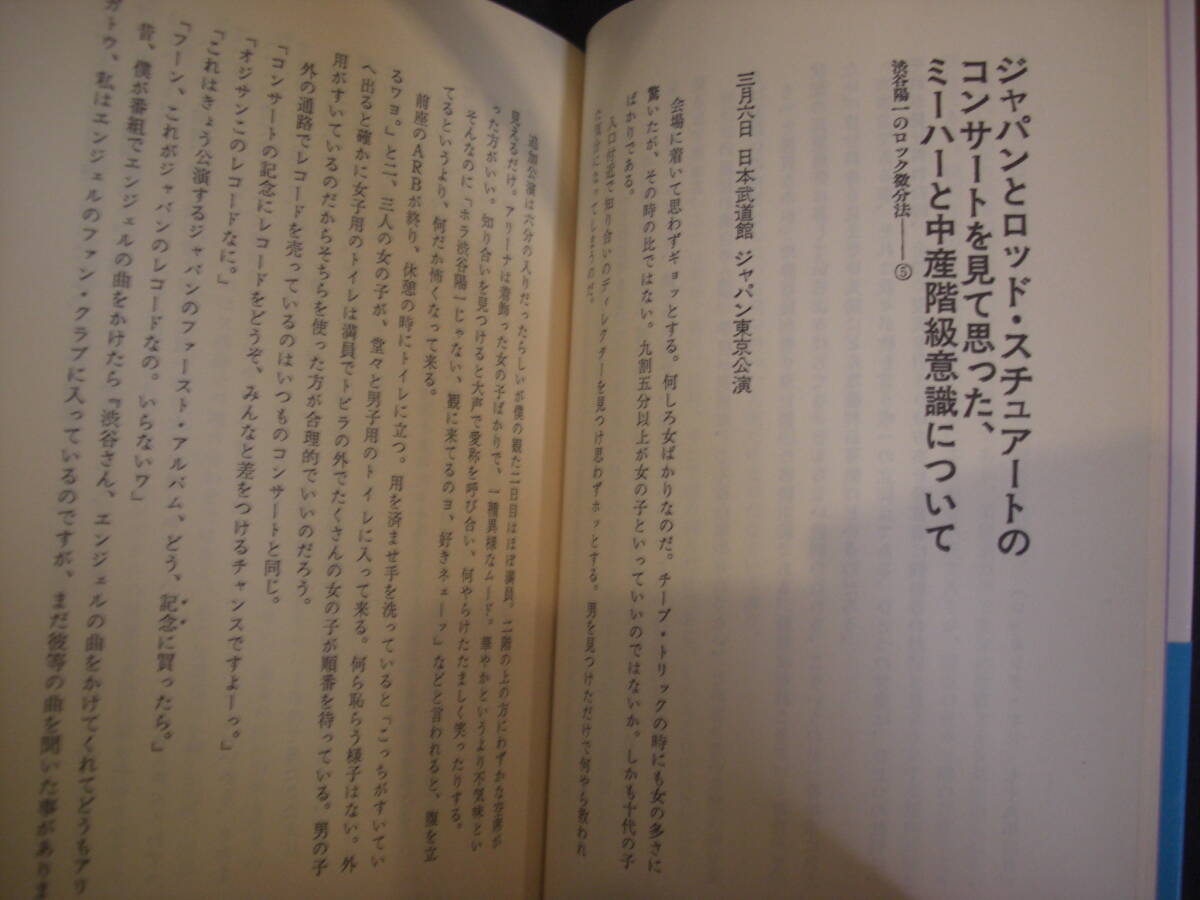 ジャパンとロッド・スチュアートの
コンサートを見て思った、
ミーハーと中産階級意識について
渋谷陽一のロック微分法——⑤
三月六日 日本武道館 ジャパン東京公演
会場に着いて思わずギョッとする。何しろ女ばかりなのだ。チープ・トリックの時にも女の多さに
驚いたが、その時の比ではない。九割五分以上が女の子といっていいのではないか。しかも十代の子
ばかりである。
入口付近で知り合いのディレクターを見つけ思わずホッとする。男を見つけただけで何やら救われ
た気分になってしまうのだ。
追加公演は六分の入りだったらしいが僕の観た二日目はほぼ満員。二階の上の方にわずかな空席が
見えるだけ。アリーナは着飾った女の子ばかりで、一種異様なムード。華やかというより不気味とい
った方がいい。知り合いを見つけると大声で愛称を呼び合い、何やらけたたましく笑ったりする。
そんなのに「ホラ渋谷陽一じゃない、観に来てるのヨ、好きネェーッ」などと言われると、腹を立
てるというより、何だか怖くなって来る。
前座のARBが終り、休憩の時にトイレに立つ。用を済ませ手を洗っていると「こっちがすいてい
るワヨ。」と二、三人の女の子が、堂々と男子用のトイレに入って来る。何ら恥らう様子はない。外
へ出ると確かに女子用のトイレは満員でトビラの外でたくさんの女の子が順番を待っている。男の子
用がすいているのだからそちらを使った方が合理的でいいのだろう。
外の通路でレコードを売っているのはいつものコンサートと同じ。
「コンサートの記念にレコードをどうぞ、みんなと差をつけるチャンスですよーっ。」
「オジサンこのレコードなに。」
「これはきょう公演するジャパンのファースト・アルバム、どう、記念に買ったら。」
「フーン、これがジャパンのレコードなの。いらないワ」
昔、僕が番組でエンジェルの曲をかけたら『渋谷さん、エンジェルの曲をかけてくれてどうもアリ
ガトウ、私はエンジェルのファン・クラブに入っているのですが、まだ彼等の曲を聞いた事がありま